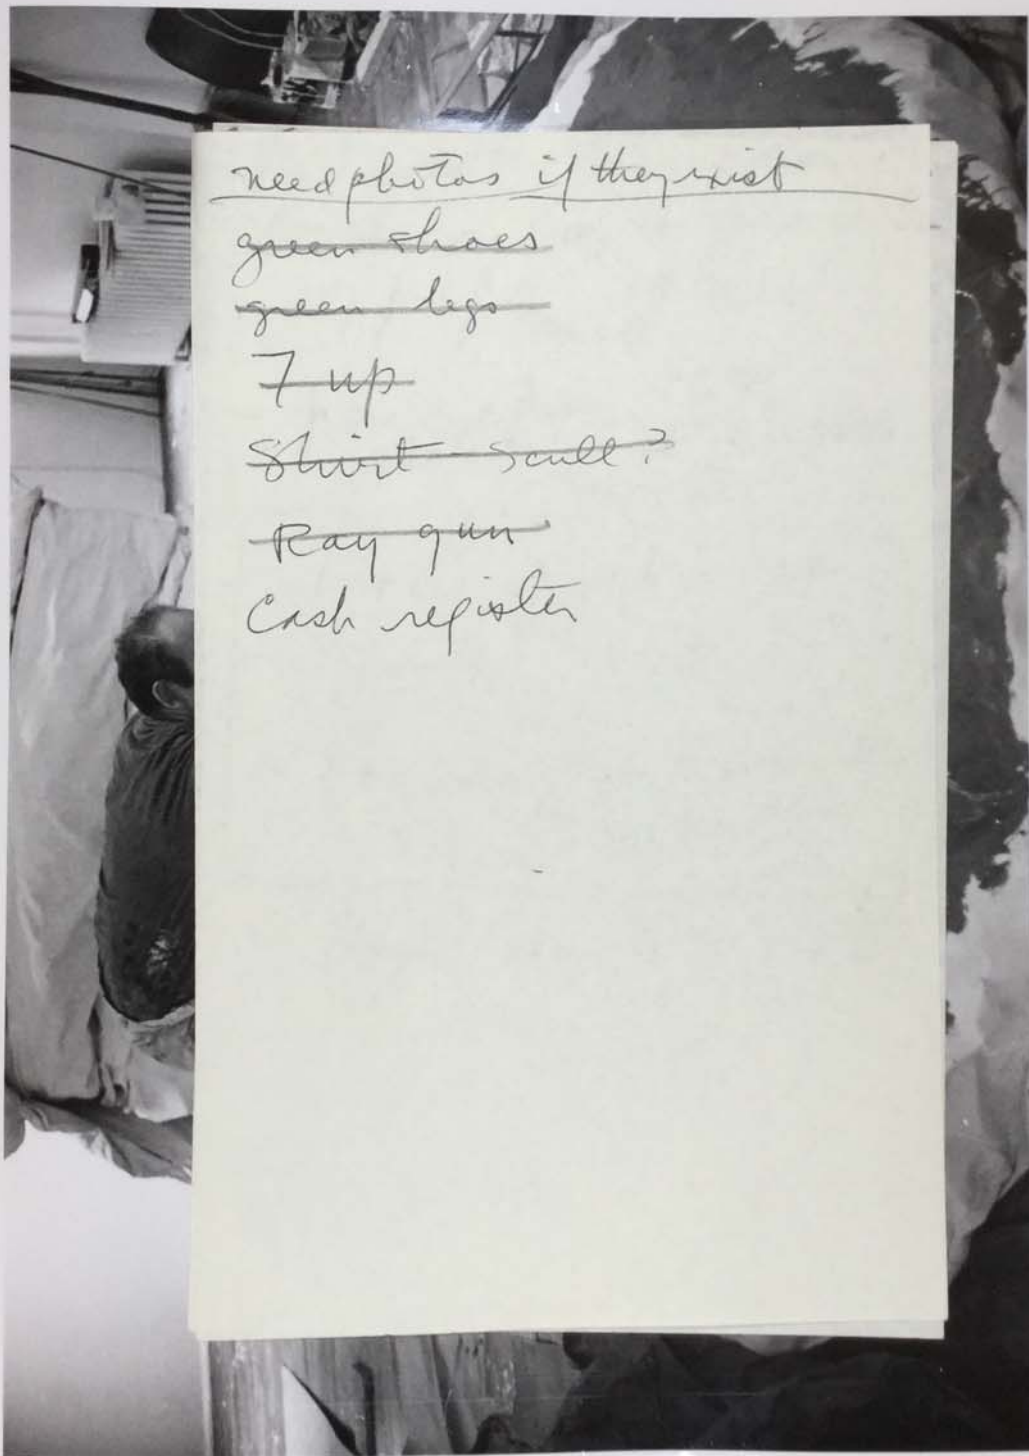 need photos if they exist
green shoes
green legs
7 up
Shirt - Scull?
Ray gun
Cash register